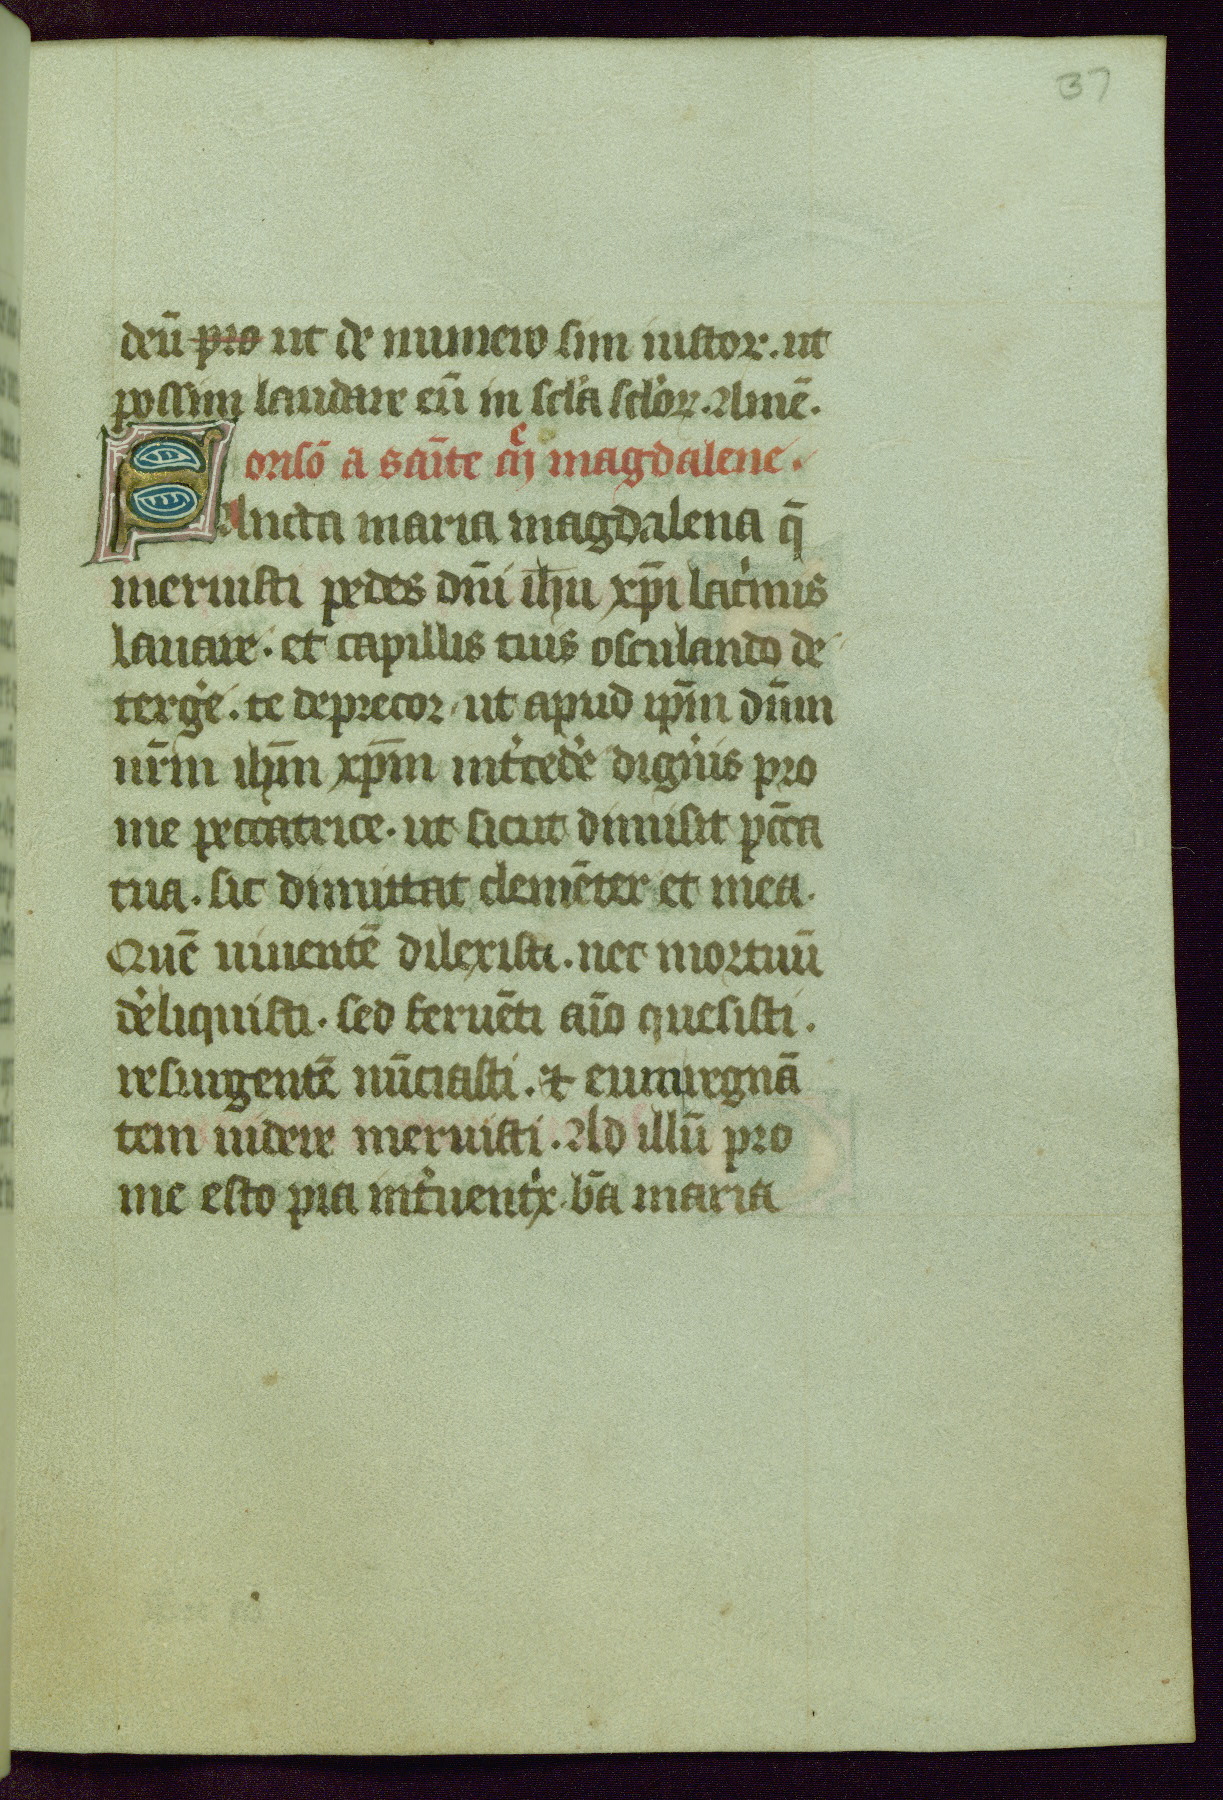 37
deū pro ut de numero sim iustoꝝ. ut
possim laudare eū in scl̓a scl̓oꝝ. Amē.
orisō a sāīte magdalene.
Sancta maria magdalena q̄
meruisti pedes dn̄i ih̄u xp̄i lac̓mis
lauare. et capillis tuis osculando de
terg̓e. te deprecor. ut apud ip̄m dn̄m
nr̄m ih̄m xp̄m int̓ced̓e dign̓is pro
me peccatrice. ut sicut dimisit pc̄ca
tua. sic dimittat clemēter et mea.
Quē uiuentē dilexisti. nec mortuū
d̓eliquisti. sed feruēti aīo quesisti.
resurgentē nūciasti. ⁊ eum regnā
tem uidere meruisti. Ad illū pro
me esto pia int̓uent̓x b̄a maria